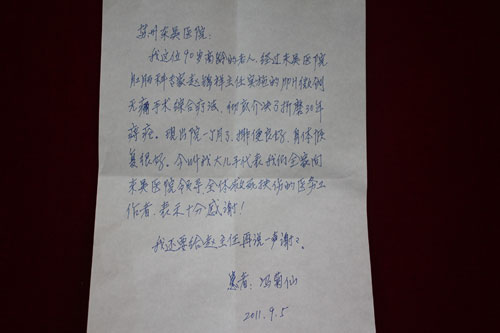 苏州东吴医院:
我这位90岁高龄的老人,经过东吴医院
肛肠科专家赵锦祥主任实施的PPH微创
无痛手术综合疗法、彻底介决了折磨30年
痔疮。现出院一个月了,排便良好,身体恢
复很好。今叫我大儿子代表我们全家向
东吴医院领导全体救死扶伤的医务工
作者,表示十分感谢!
我还要给赵主任再说一声谢谢。
患者:冯菊仙
2011.9.5